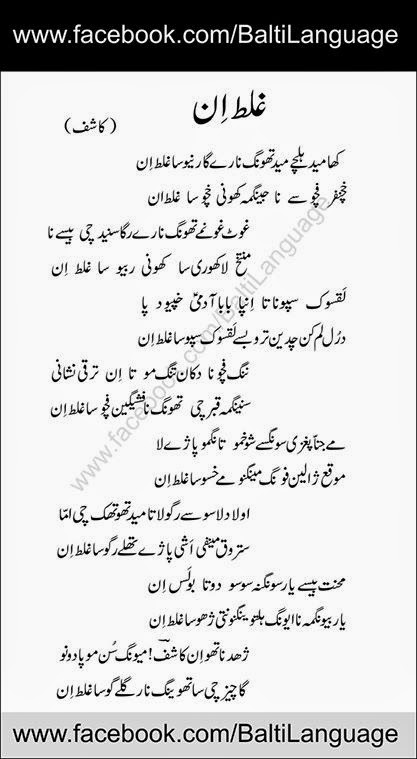 www.facebook.com/BaltiLanguage
غلط اِن
(کاشف)
کھا مید ہلچے مید تھونگ نارے گار نیو سا غلط اِن
خچفر فچو سے نا جینگمہ کھونی خچو سا غلط ان
غوٹ غونمے تھونگ نارے رگا سنید چی بیسے نا
منتخ لاہوری سا کھونی ربیو سا غلط اِن
لقسوک سپونا تا اِنپا بابا آدمؑ خپیود پا
درُل لم کن چدین تروبسے لقسوک سپو سا غلط اِن
ننگ فچونا دکان تنگ مو تا اِن ترقی نشانی
سنینگمہ قبر چی تھونگ نا فشیگین فچو سا غلط اِن
مے جنا پغزی سونگسے شو خمو تانگمو پاڑے لا
موقع ژالین فونگ مینگو مے خسو سا غلط اِن
اولاد لا سو سے رگولا تا مید تھو تھک چی امّا
ستروق میٹفی اَشی پاڑے تھلے رگو سا غلط اِن
محنت بیسے یار سونگنہ سوسو دو تا بولس اِن
یار بیونگمہ نا ایونگ ہلتو ینگو نتی ژھو سا غلط اِن
ژھد نا تھو اِن کاشفؔ! میونگ سُن مو پا دونو
گا چیز چی سا تھو ینگ نار گلے گو سا غلط اِن
www.facebook.com/BaltiLanguage
www.facebook.com/BaltiLanguage